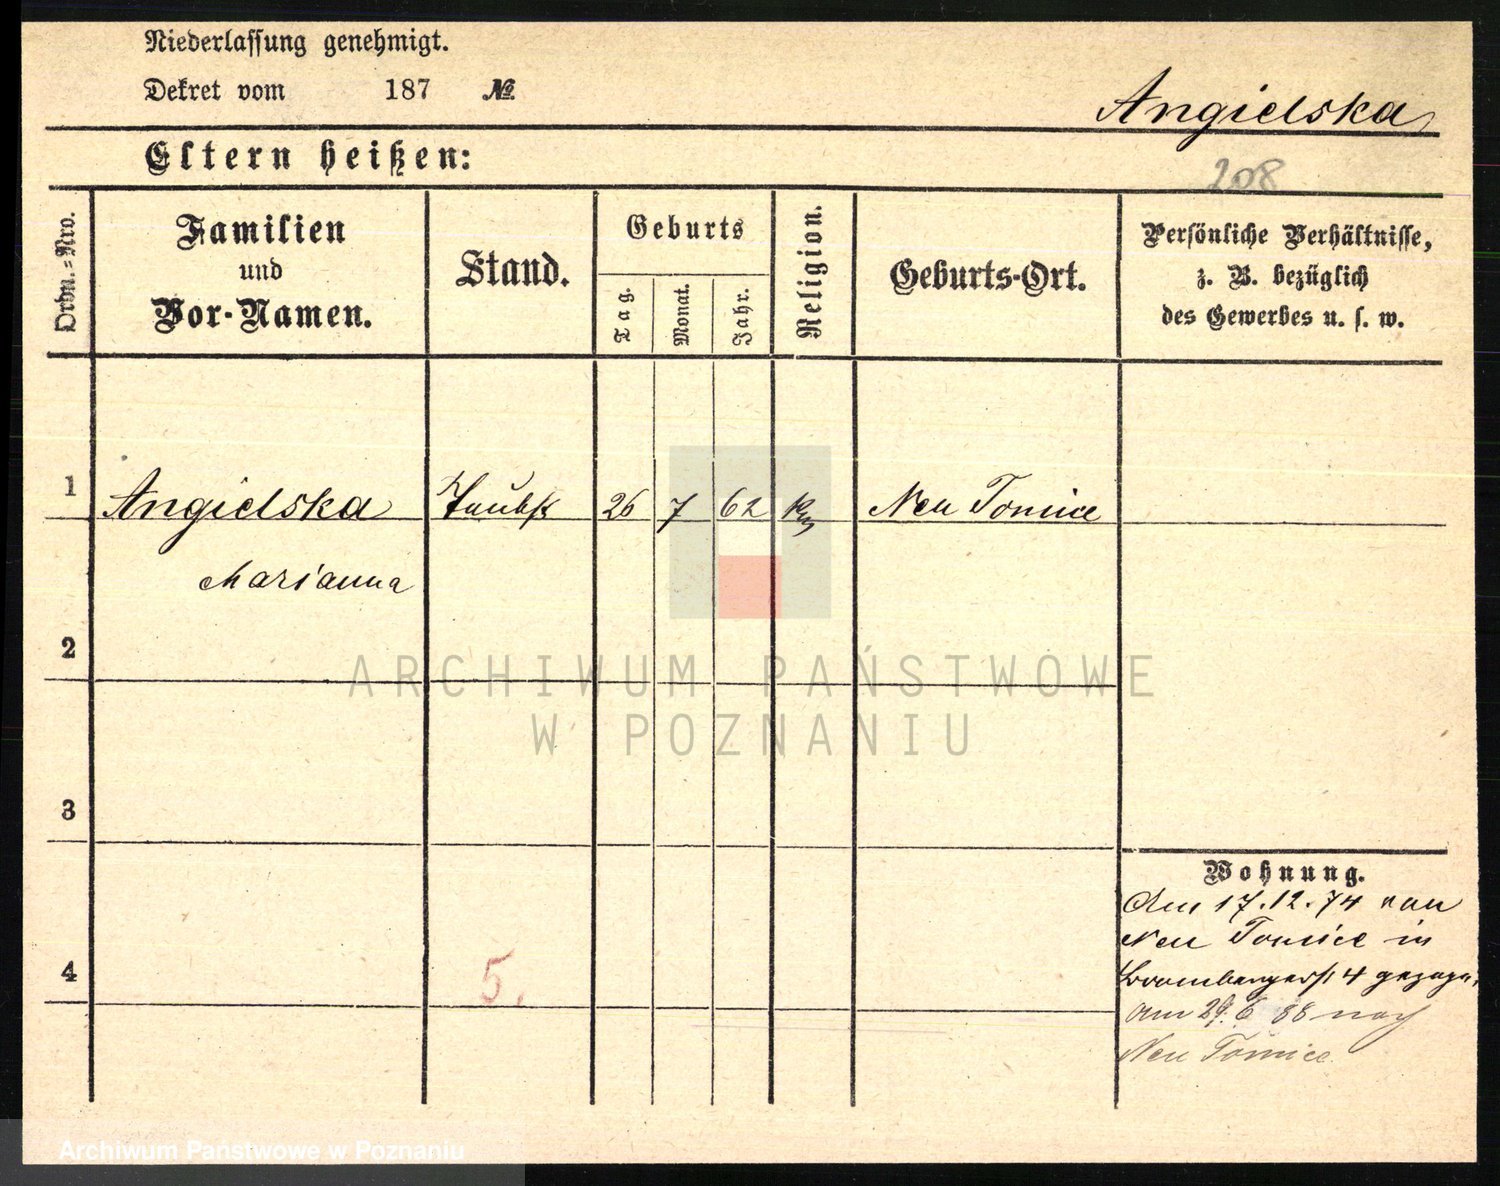 Niederlassung genehmigt.
Dekret vom 187 №
Angielska
Eltern heißen:
208
Ordn.-Nro.
Familien
und
Vor-Namen.
Stand.
Geburts
Tag.
Monat.
Jahr.
Religion.
Geburts-Ort.
Persönliche Verhältnisse,
z. B. bezüglich
des Gewerbes u. s. w.
1 Angielska 26 7 62 Neu Tomice
Marianna
2
ARCHIWUM PAŃSTWOWE
W POZNANIU
3
Wohnung.
Am 17.12.74 von
Neu Tomice in
4 5.
Brombergerst 4 gezogen,
am 29.6 88 nach
Neu Tomice.
Archiwum Państwowe w Poznaniu